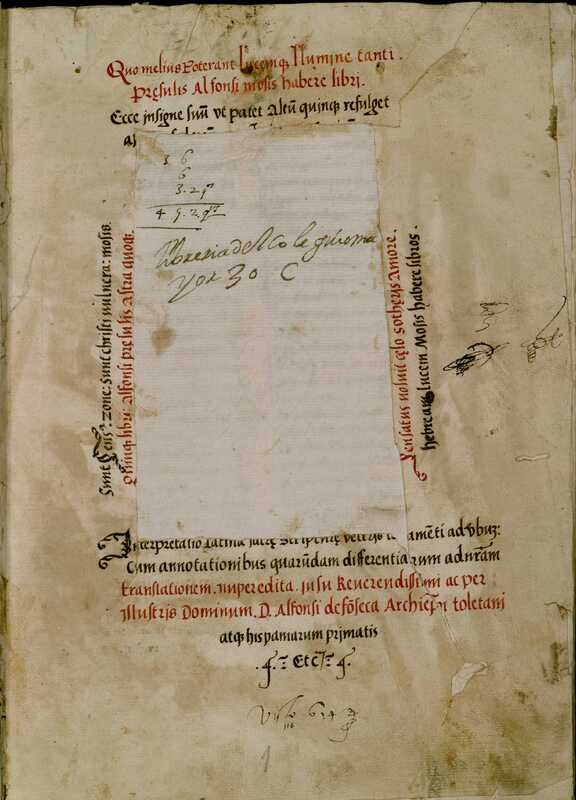 Quo melius Poterant Lucemq; Illumine tanti.
Presulis Alfonsi mosis habere libri.
Ecce jnsigne suũ vt patet Altũ quinq; refulget
3 6
6
3.2 qº
4 9.2 qº
Libreria del Colegio ma
yor 30 C
Sunt zone: sunt christi vulnera: mosis.
Quinq; libri: Alfonsi presulis Astra quoq;
Versatus voluit celo sotheris Amore.
hebream lucem Mosis habere libros.
Interpretatio Latina
Cum annotationibus quarũdam differentiarum ad nr̃am
translationem. nuper edita. jusu Reverendissimi ac per
jllustris Dominum. D. Alfonsi de fõseca Archiep̃i toletani
atq; hispaniarum primatis
. Etc̃ .
1